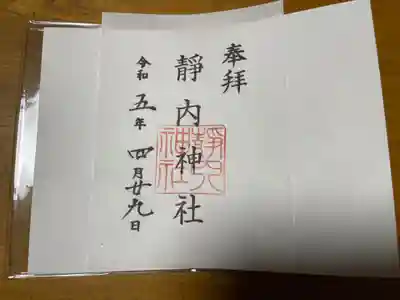 奉拝
靜内神社
靜内
神社
令和五年四月廿九日